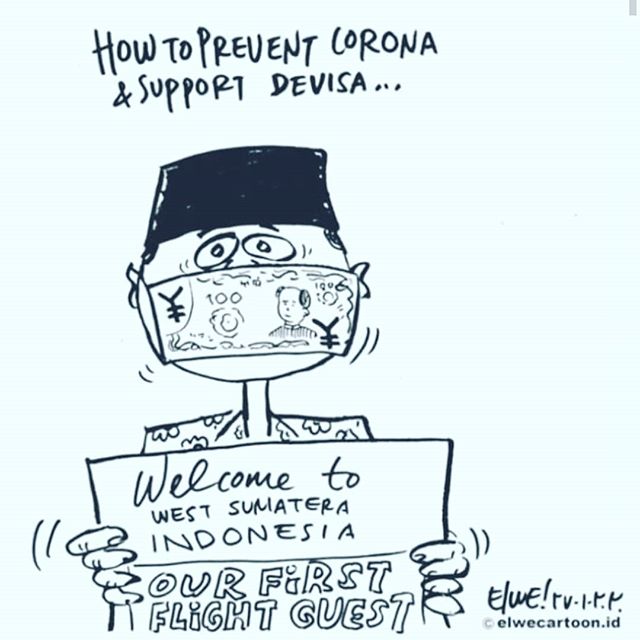 HOW TO PREVENT CORONA
& SUPPORT DEVISA...
¥ 100 100
¥
Welcome to
WEST SUMATERA
INDONESIA
OUR FiRST
FLiGHT GUEST
Elwe!
© elwecartoon.id